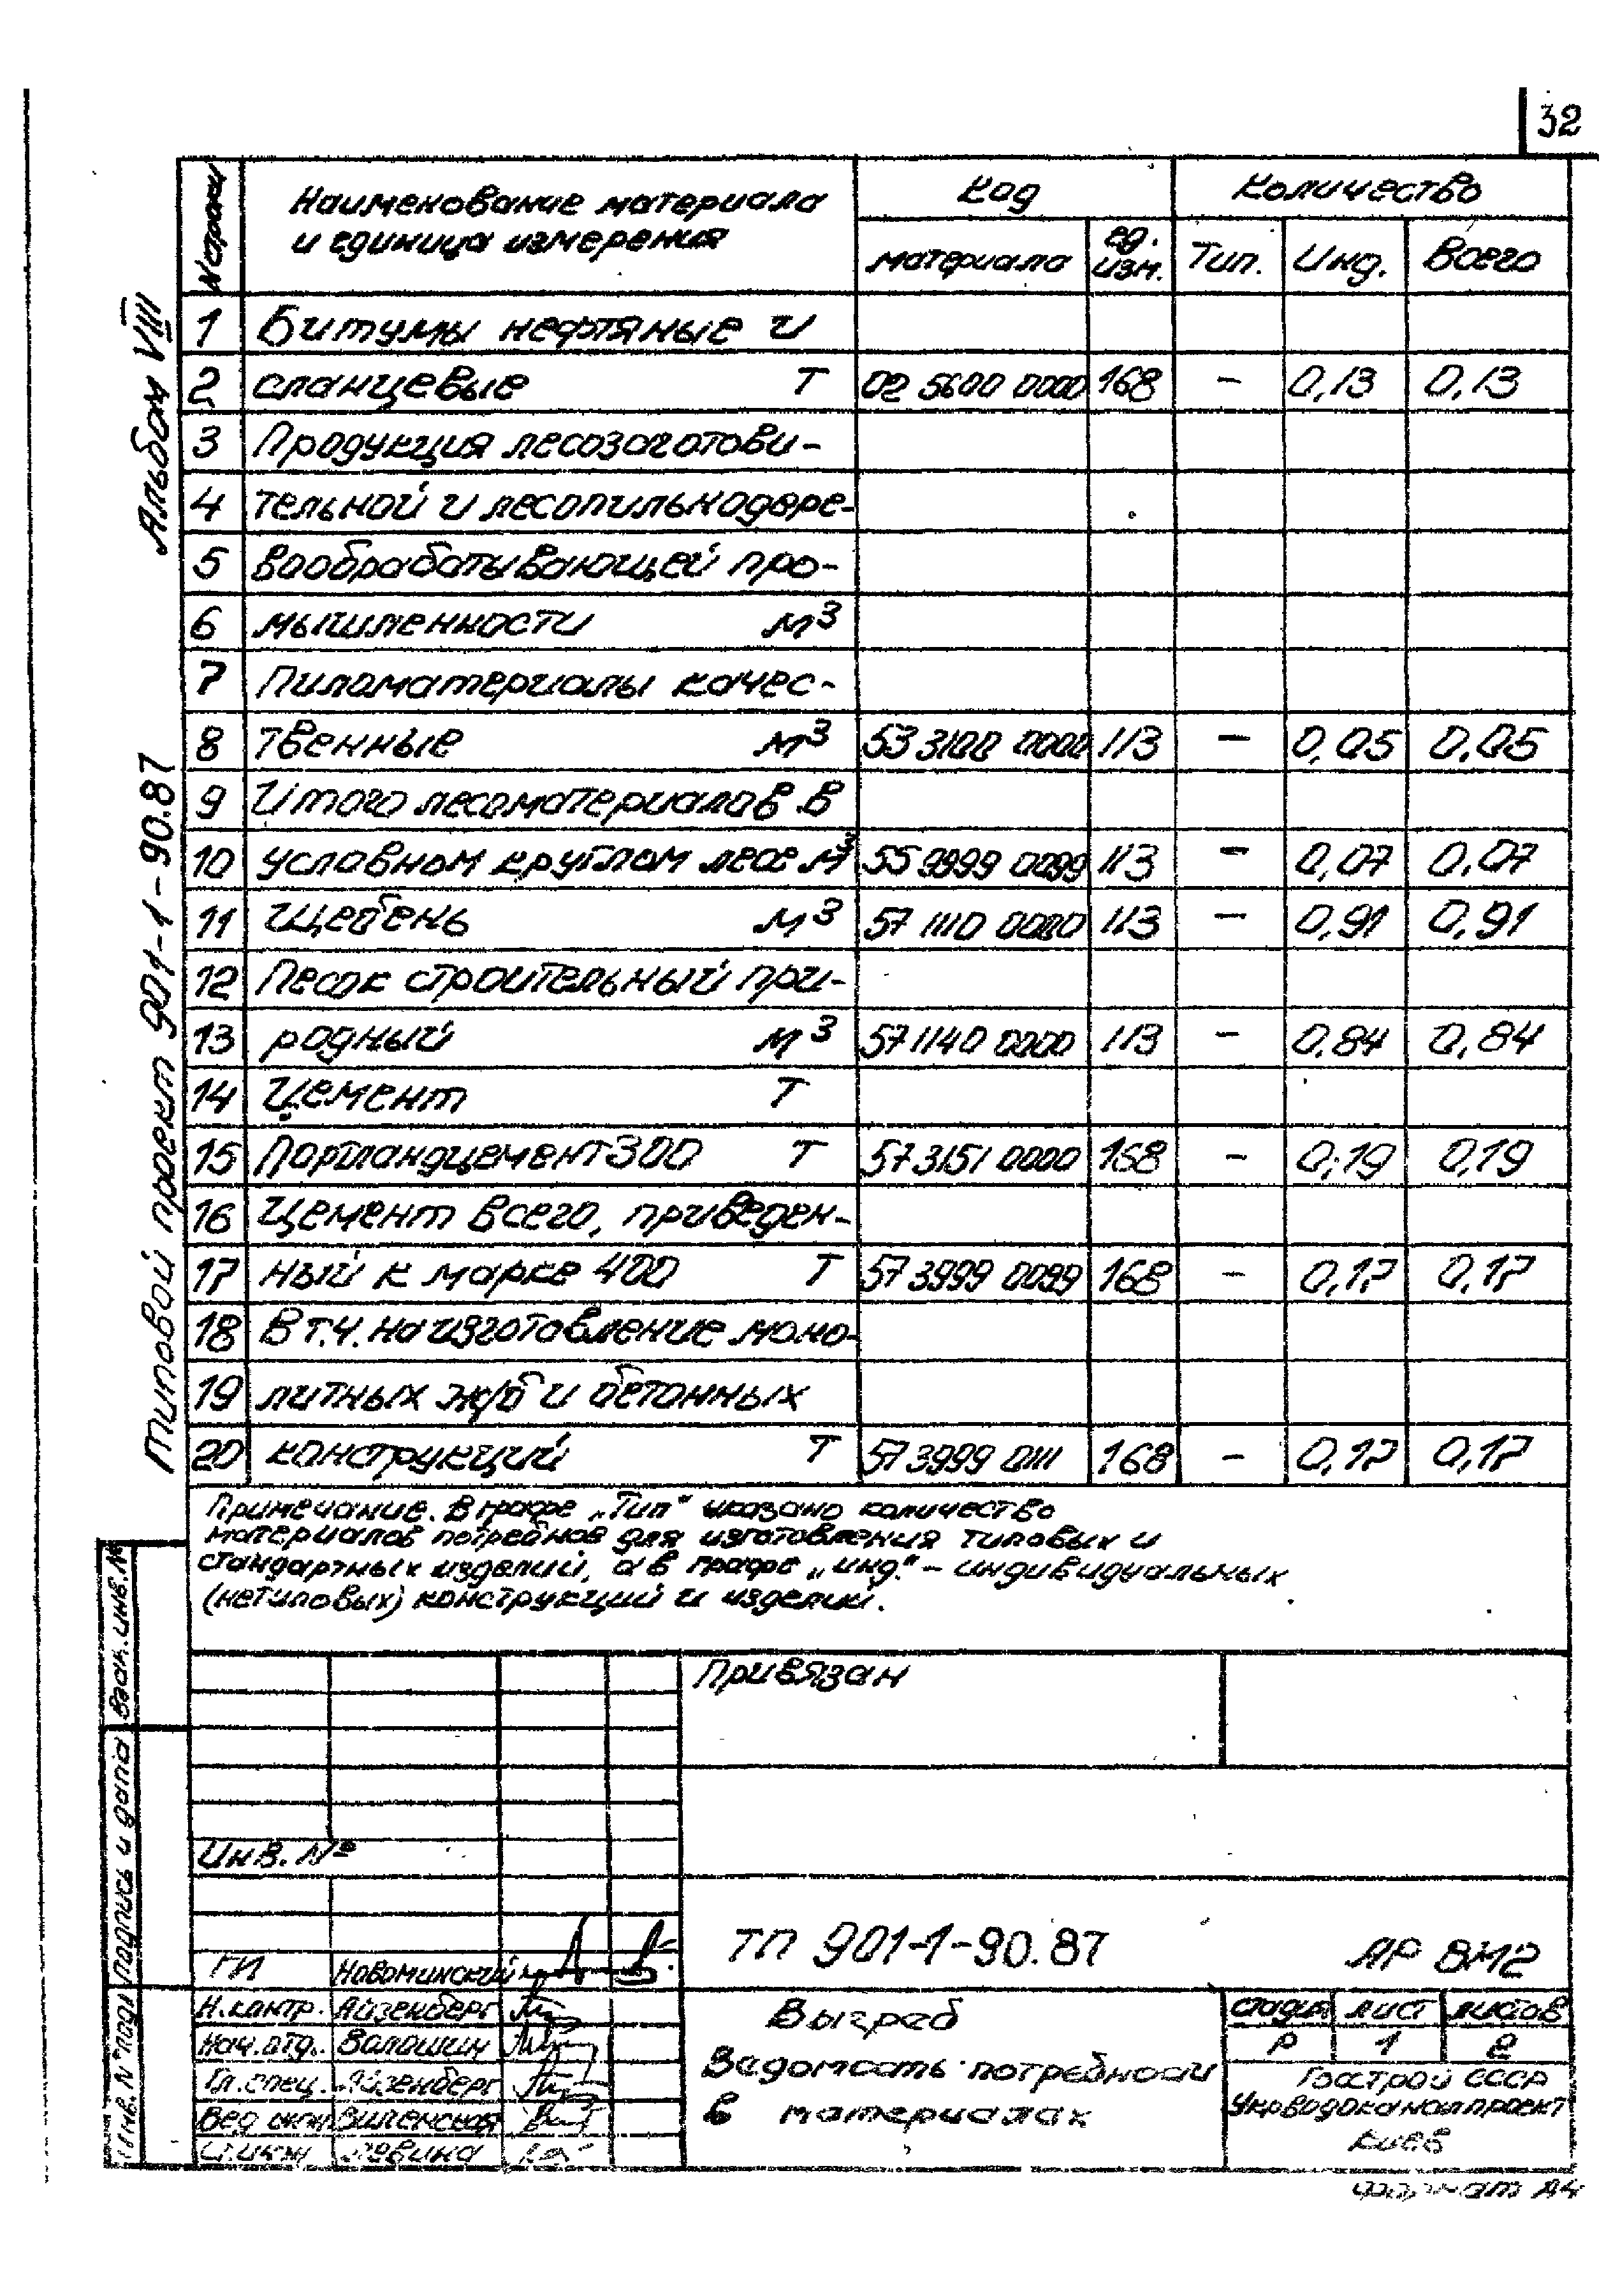 32
Альбом VIII
Типовой проект 901-1-90.87
№ строки
Наименование материала
и единица измерения
Код
Количество
материала
ед.
изм.
Тип.
Инд.
Всего
1 Битумы нефтяные и
2 сланцевые Т 02 5600 0000 168 – 0,13 0,13
3 Продукция лесозаготови-
4 тельной и лесопильнодере-
5 вообрабатывающей про-
6 мышленности м3
7 Пиломатериалы качес-
8 твенные м3 53 3100 0000 113 – 0,05 0,05
9 Итого лесоматериалов в
10 условном круглом лесе м3 55 9999 0099 113 – 0,07 0,07
11 Щебень м3 57 1110 0000 113 – 0,91 0,91
12 Песок строительный при-
13 родный м3 57 1140 0000 113 – 0,84 0,84
14 Цемент Т
15 Портландцемент 300 Т 57 3151 0000 168 – 0,19 0,19
16 Цемент всего, приведен-
17 ный к марке 400 Т 57 3999 0099 168 – 0,17 0,17
18 В т.ч. на изготовление моно-
19 литных ж/б и бетонных
20 конструкций Т 57 3999 0111 168 – 0,17 0,17
Примечание. В графе „Тип" указано количество
материалов потребное для изготовления типовых и
стандартных изделий, а в графе „инд." – индивидуальных
(нетиповых) конструкций и изделий.
Взам. инв. №
Подпись и дата
Инв. № подл
Привязан
Инв. №
ТП 901-1-90.87
АР ВМ2
ГИ Новоминский
Н.контр. Айзенберг
Нач.отд. Волошин
Гл.спец. Айзенберг
Вед инж Виленская
Левина
Выгреб
Ведомость потребности
в материалах
стадия лист листов
Р 1 2
Госстрой СССР
Укрводоканалпроект
Киев
Формат А4